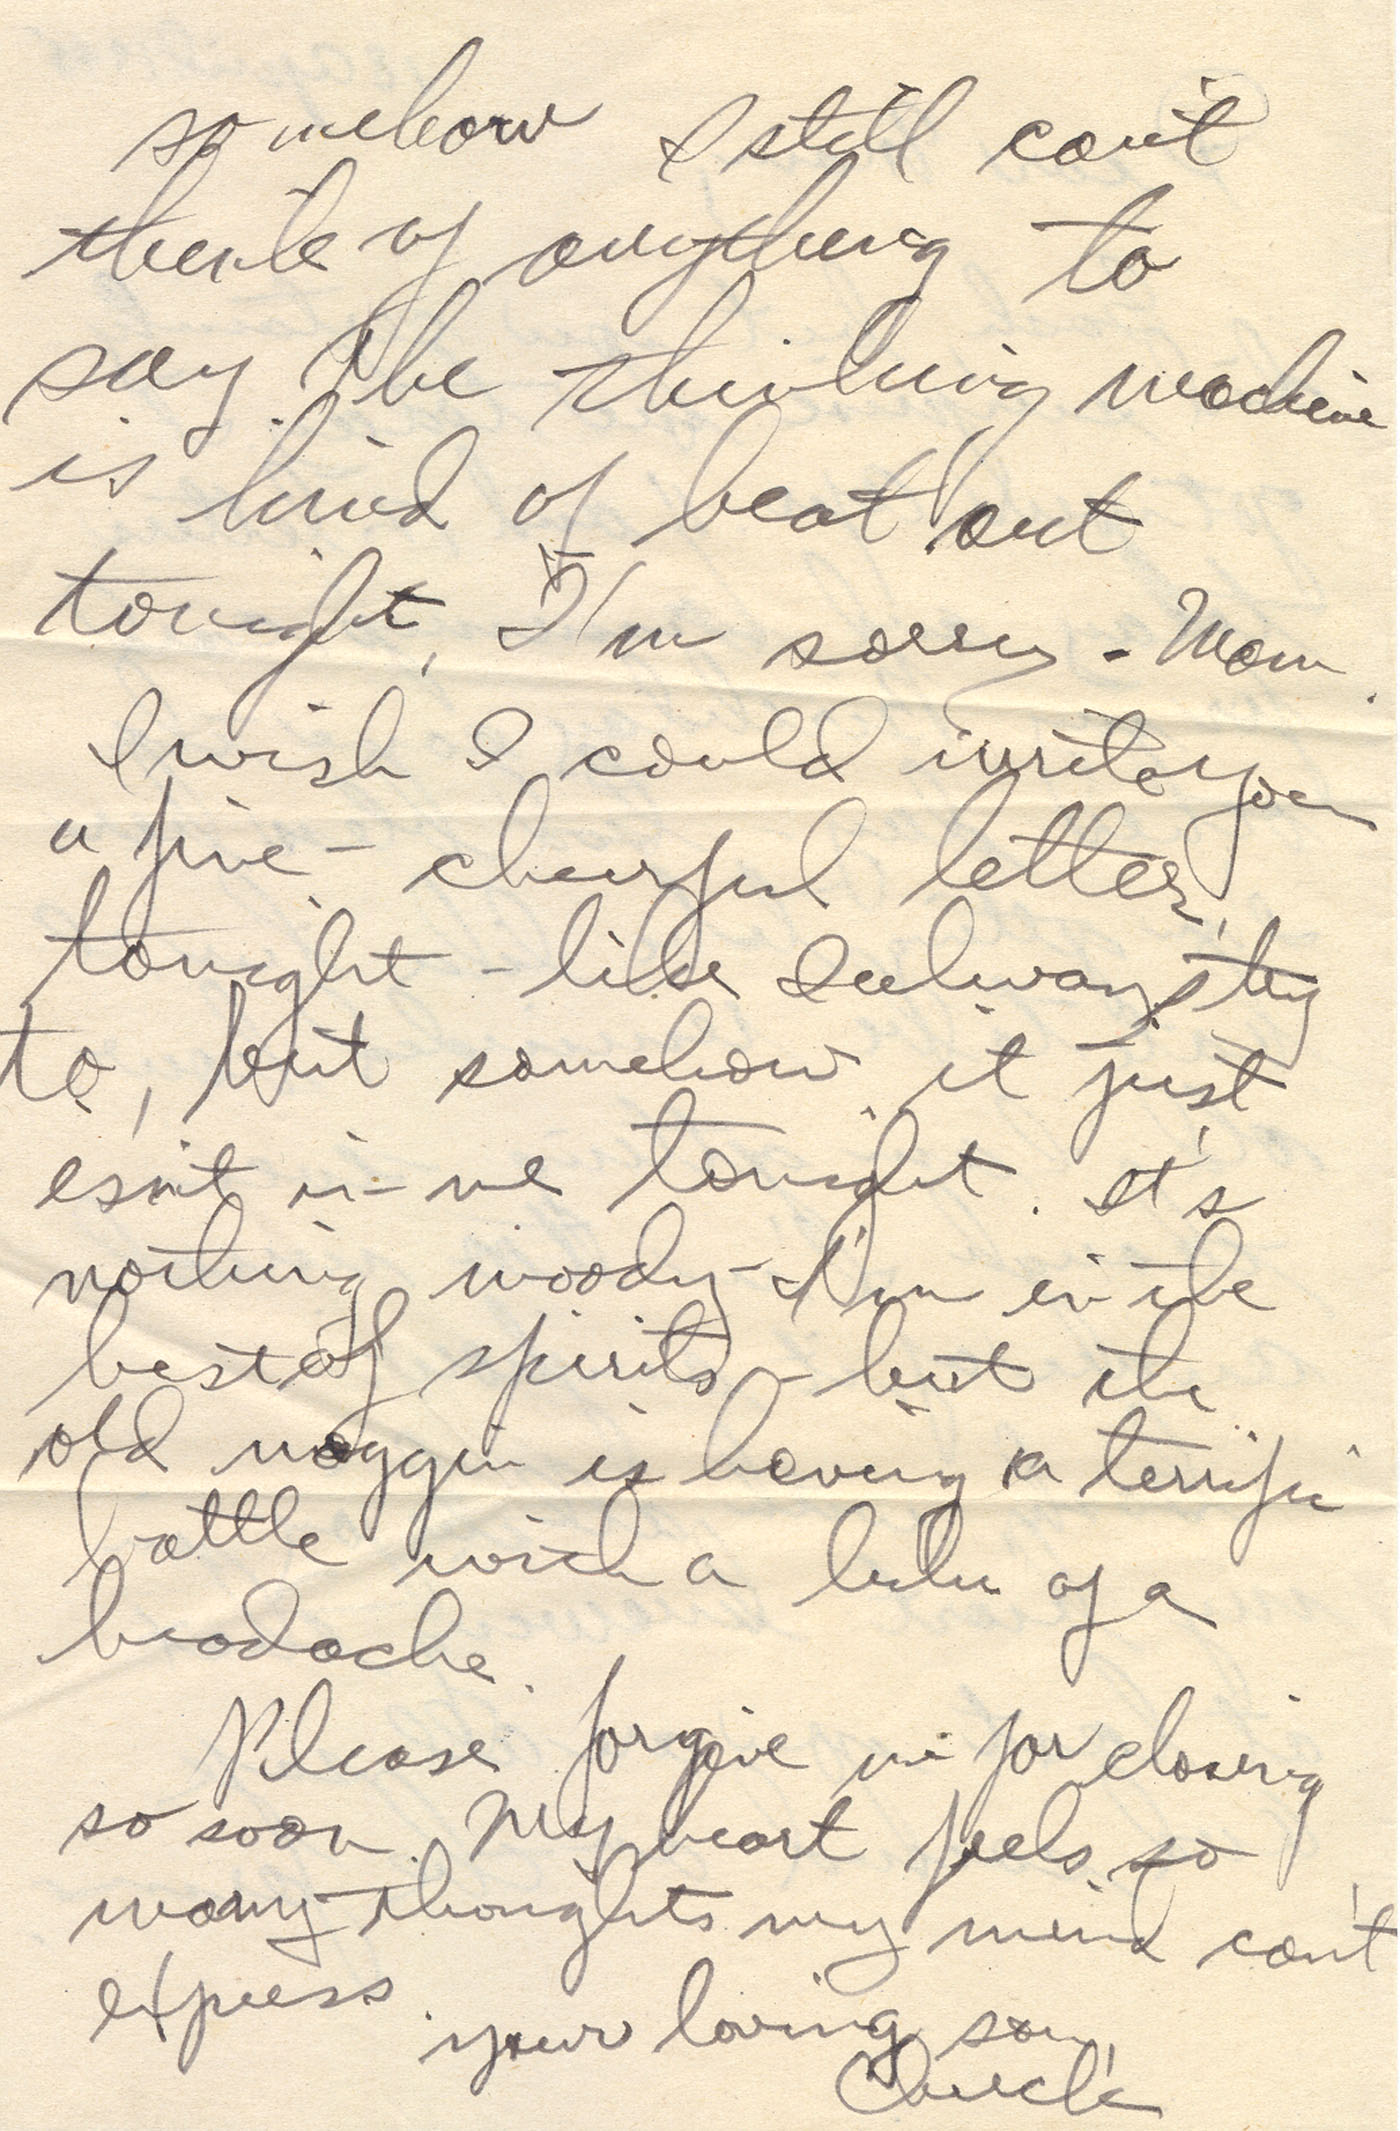 somehow I still can't
think of anything to
say. The thinking machine
is kind of beat out
tonight, I'm sorry - Mom.
I wish I could write you
a fine - cheerful letter,
tonight - like I always try
to, but somehow it just
isn't in me tonight. It's
nothing moody - I'm in the
best of spirits - but the
old noggin is having a terrific
battle with a lulu of a
headache.
Please forgive me for closing
so soon. My heart feels so
many thoughts my mind can't
express.
your loving son,
Chuck